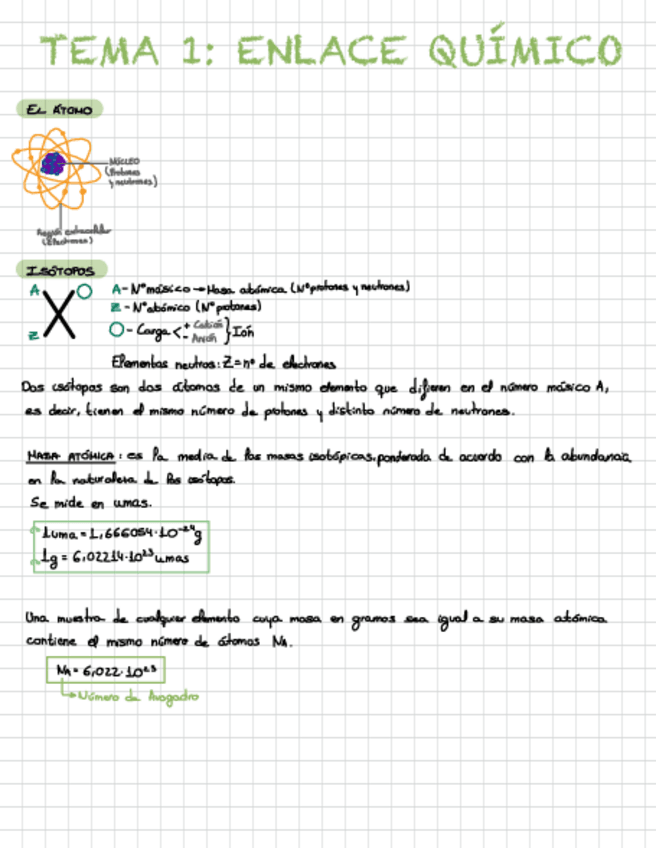 TEMA 1: ENLACE QUÍMICO
EL ÁTOMO
NÚCLEO
(Protones
y neutrones)
Región extranuclear
(Electrones)
ISÓTOPOS
A
Z
X
A- Nº másico → Masa atómica (Nº protones y neutrones)
Z - Nº atómico (Nº protones)
O - Carga < + Catión - Anión } Ión
Elementos neutros: Z = nº de electrones
Dos isótopos son dos átomos de un mismo elemento que difieren en el número másico A,
es decir, tienen el mismo número de protones y distinto número de neutrones.
MASA ATÓMICA: es la media de las masas isotópicas, ponderada de acuerdo con la abundancia
en la naturaleza de los isótopos.
Se mide en umas.
1uma = 1,666054·10⁻²⁴g
1g = 6,02214·10²³umas
Una muestra de cualquier elemento cuya masa en gramos sea igual a su masa atómica
contiene el mismo número de átomos NA.
NA = 6,022·10²³
Número de Avogadro